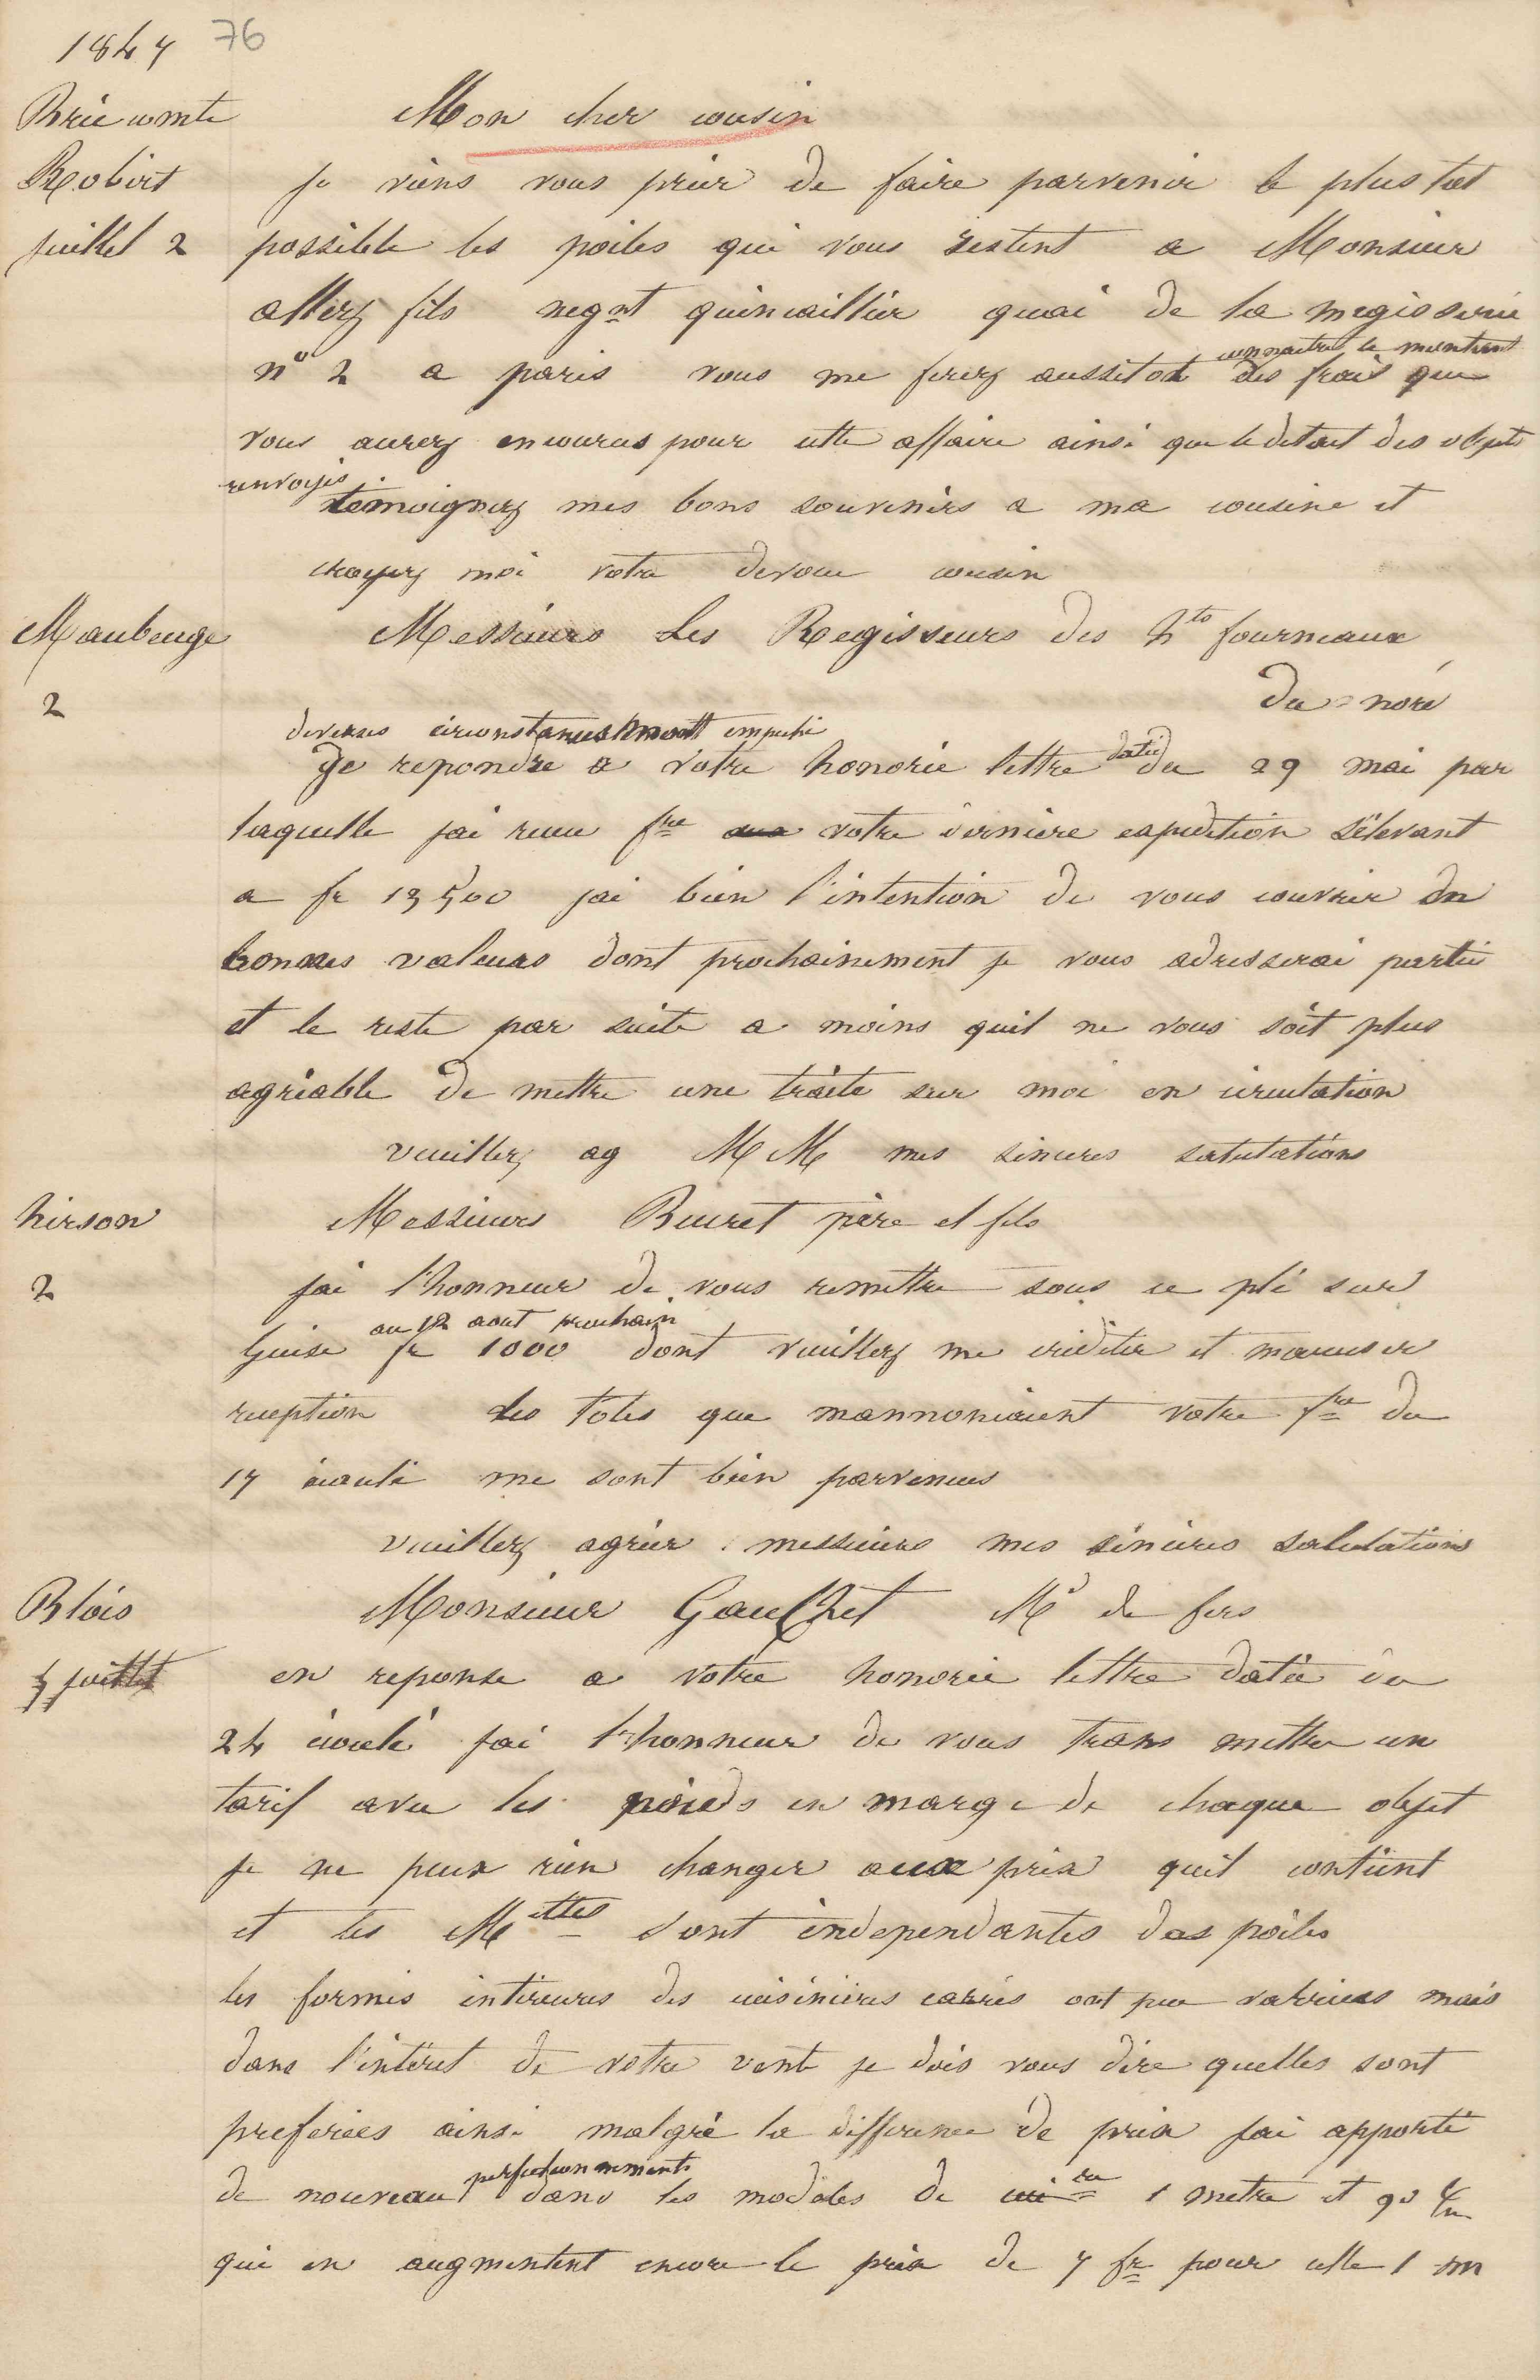 1847 76
Brie comte
Robert
juillet 2
Mon cher cousin
je viens vous prier de faire parvenir le plus tot
possible les poiles qui vous restent a Monsieur
allez fils negnt quincaillier quai de la megisserie
n° 2 a paris vous me ferez aussitot connaitre le montant des frais que
vous aurez encourus pour cette affaire ainsi que le detail des objets
renvoyés.
temoignez mes bons souvenirs a ma cousine et
croyez moi votre devoue cousin
Maubeuge
2
Messieurs Les Regisseurs des hts fourneaux
du nord
diverses circonstances mont empeché
de repondre a votre honorée lettre datée du 29 mai par
laquelle jai recu fre votre derniere expedition s'élevant
a fr 13500 jai bien l'intention de vous couvrir en
bonnes valeurs dont prochainement je vous adresserai partie
et le reste par suite a moins quil ne vous soit plus
agréable de mettre une traite sur moi en circulation
veuillez ag MM mes sinceres salutations
hirson
2
Messieurs Buuret père et fils
jai l'honneur de vous remettre sous ce pli sur
Guise au 12 aout prochain fr 1000 dont veuillez me créditer et maccuser
reception Les toles que mannoncaient votre fre du
17 écoulé me sont bien parvenues
veuillez agréer messieurs mes sincères salutations
Blois
juillet
Monsieur Gauchet Md de fers
en reponse a votre honorée lettre datée du
24 écoulé jai l'honneur de vous trans mettre un
tarif avec les poieds en marge de chaque objet
je ne peux rien changer aux prix quil contient
et les Mettes sont independantes des poiles
les formes intérieures des cuisinières carrés ont peu varriees mais
dans l'intéret de votre vente je dois vous dire quelles sont
preferées ainsi malgré la difference de prix jai apporté
de nouveau perfectionnements dans les modeles de cuire 1 metre et 90 c/m
qui en augmentent encore le prix de 7 fr pour celle 1 m